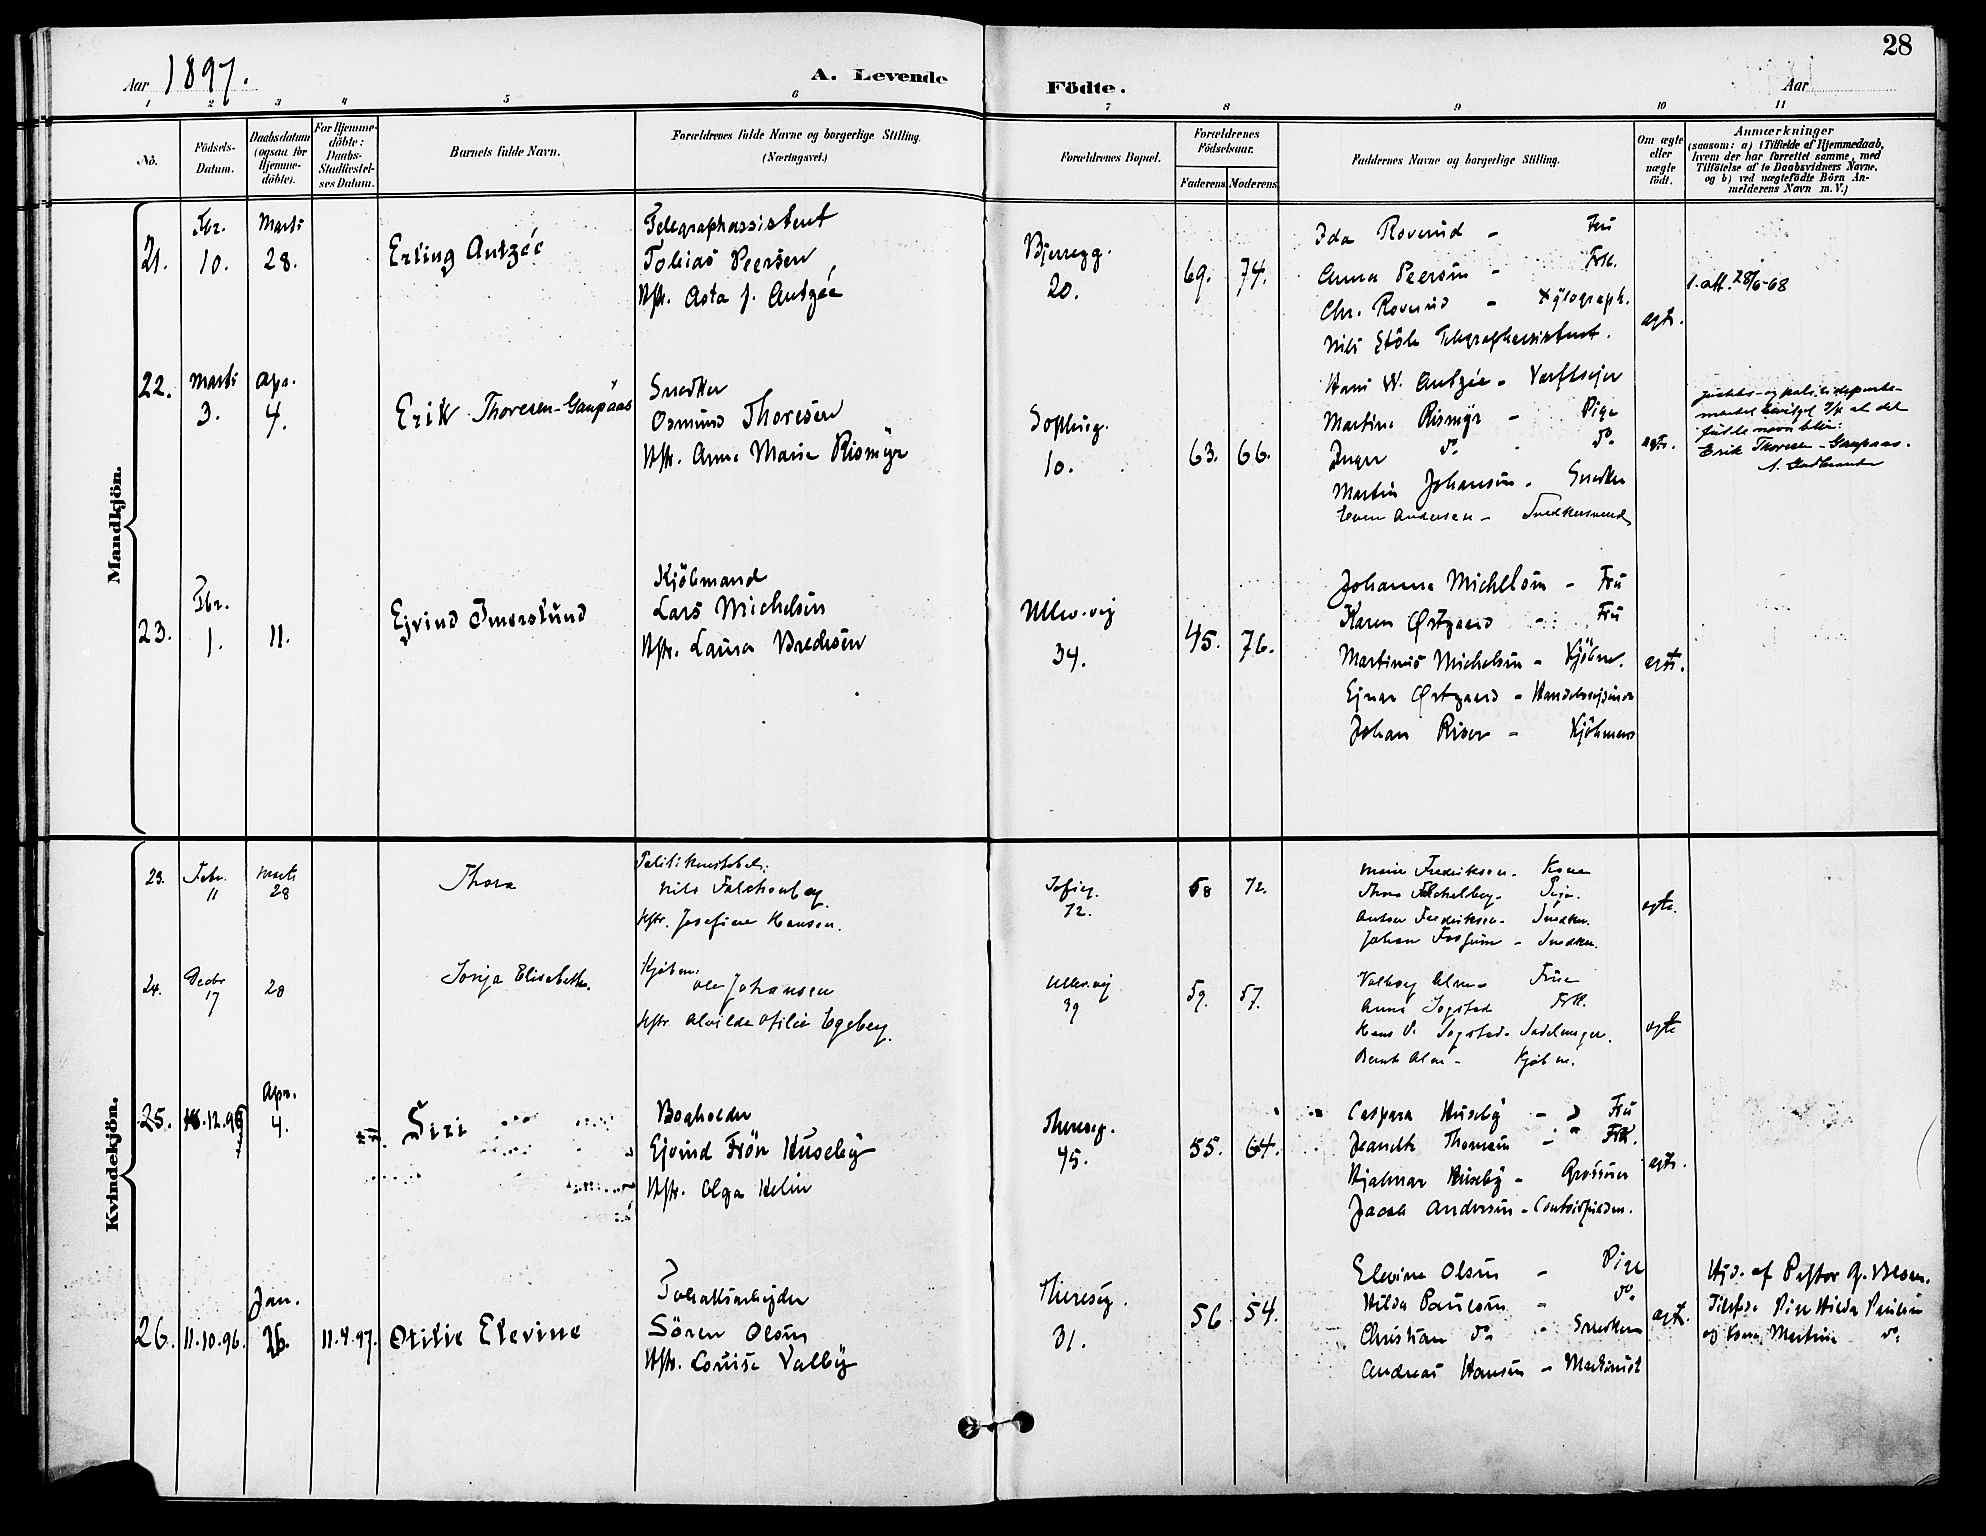 28
Aar 1897.
A. Levende Födte.
Aar
1 2 3 4 5 6 7 8 9 10 11
No.
Födsels-Datum.
Daabsdatum (ogsaa for Hjemme-döbte).
For Hjemme-döbte: Daabs-Stadfæstel-ses Datum.
Barnets fulde Navn.
Forældrenes fulde Navne og borgerlige Stilling.
(Næringsvei.)
Forældrenes Bopæl.
Forældrenes Födselsaar.
Faderens Moderens
Faddernes Navne og borgerlige Stilling.
Om ægte eller uægte födt.
Anmærkninger
(saasom: a) i Tilfælde af Hjemmedaab,
hvem der har forrettet samme, med
Tilföielse af to Daabsvidners Navne,
og b) ved uægtefödte Börn An-
melderens Navn m. V.)
Mandkjön.
21. Fbr. 10. Marts 28.
Erling Antzée
Telegraphassistent
Tobias Peersen
Hstr. Asta f. Antzée
Bjerregg.
20.
69. 74.
Ida Roverud - Fru
Anna Peersen - Frk.
Chr. Roverud - Xylograph.
Nils Telegraphassistent.
Antzée - Værftsejer
ægte.
22. Marts 3. Apr. 4.
Erik Thoresen-Gaupaas
Snedker
Osmund Thoresen
Hstr. Anne Marie Rismyr
Sophieg.
10.
63. 66.
Martine Rismyr - Pige
Inger do. - do.
Martin Johansen - Snedker
Even Andersen - Snedkersvend
ægte.
fulde navn blir:
Erik Thoresen-Gaupaas.
23. Fbr. 1. 11.
Ejvind Imerslund
Kjöbmand
Lars Michelsen
Hstr. Laura Bredesen
Ullev.vej
34.
45. 76.
Johanne Michelsen - Fru
Karen Østgaard - Fru
Martinus Michelsen - Kjöbm.
Ejnar Østgaard -
Johan Riser - Kjöbmand
ægte.
Kvindekjön.
23. Febr. 11 Marts 28
Thora
Politikonstabel:
Nils Falchenberg
Hstr. Josefine Hansen.
Sofieg.
72.
68 72.
Marie Fredriksen - Kone
Anton Fredriksen - Snedker.
Johan - Snedker.
ægte.
24. Decbr 17 28
Sonja Elisabeth.
Kjöbm.
Ole Johansen
Hstr. Alvilde Otilie Egeberg.
Ullev.vej
39
59. 57.
Valborg Alm - Frue
Anna Sogstad Frk.
Hans P. Sogstad - Sadelmager.
Bernt Alm - Kjöbm.
ægte
25. Apr. 4.
Siri
Bogholder
Ejvind Frön Huseby
Hstr. Olga Helin
Thereseg.
45.
55. 64.
Caspara Huseby - Fru
Jeanette Thomesen - Frk.
Hjalmar Huseby - Grosserer
Jacob Andersen -
ægte.
26. 11.10.96. Jan. 26. 11.4.97.
Otilie Elevine
Fabrikarbejder
Sören Olsen
Hstr. Louise Valby
Thereseg.
31.
56 54.
Elevine Olsen - Pige
Hilda Paulsen - do.
Christian do. - Snedker
Andreas Hansen - Maskinist
ægte.
Hjd. af Pastor
Pige Hilda Paulsen
og Kone Martine do.